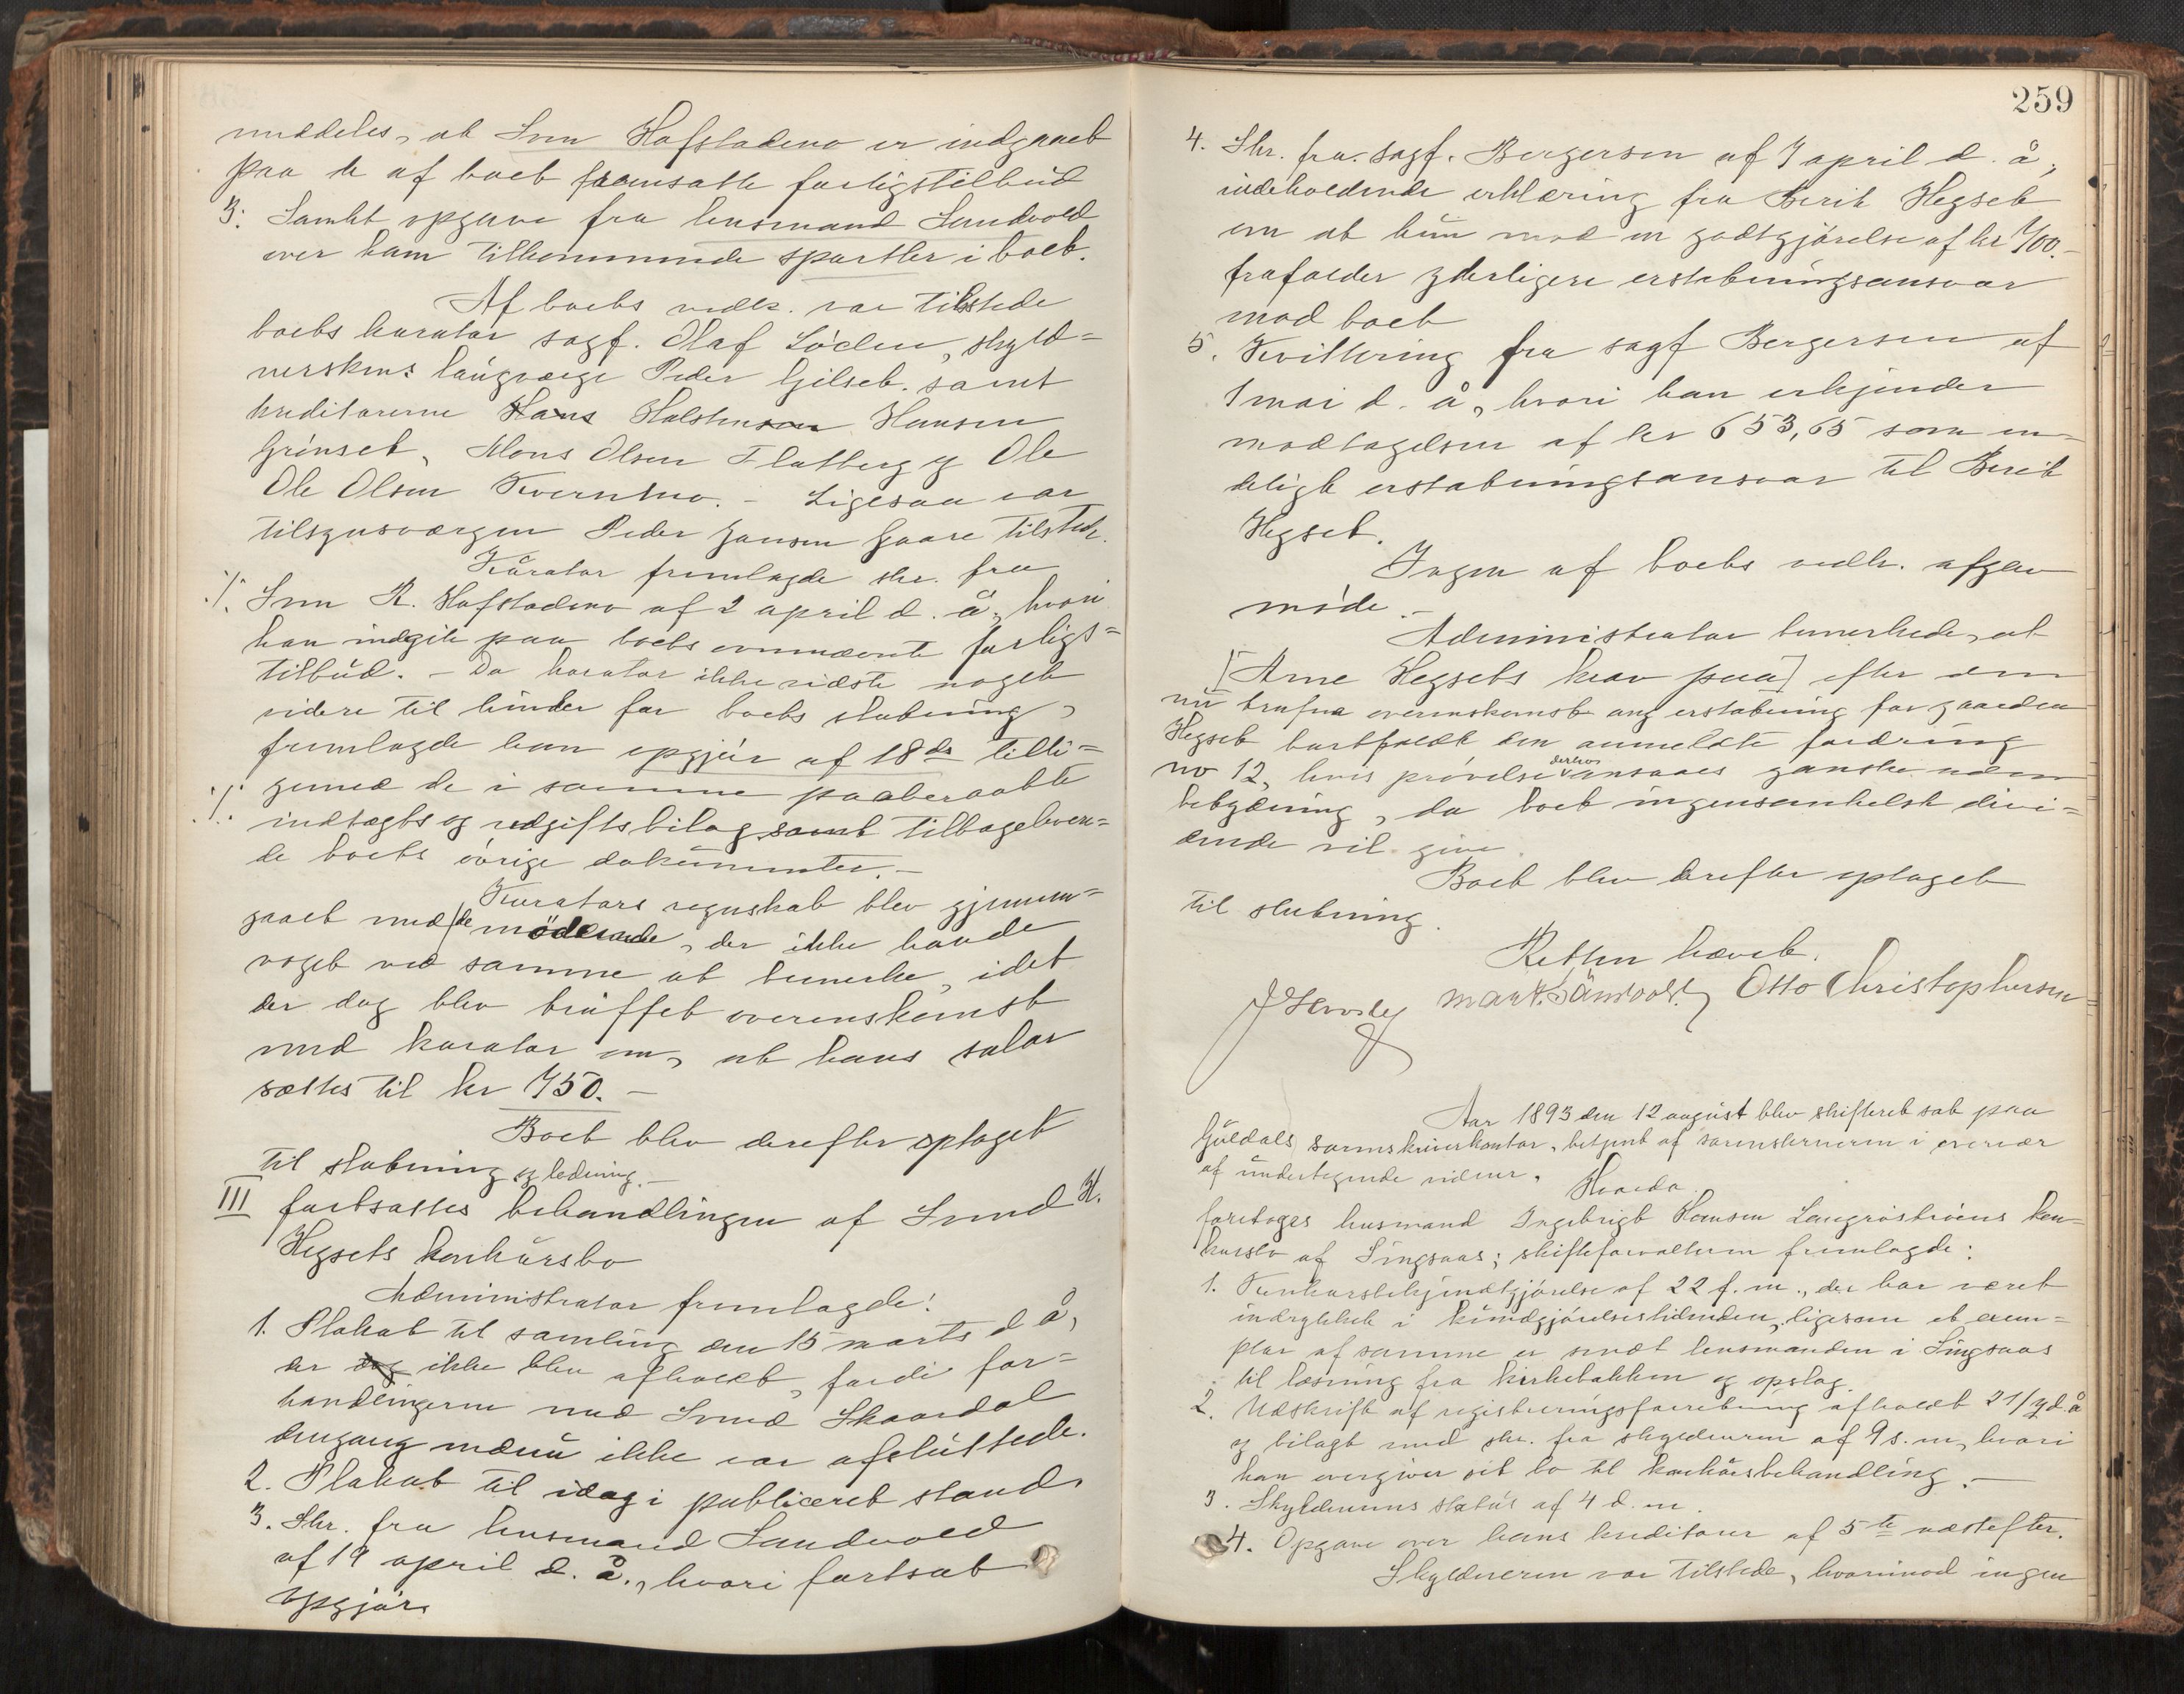 meddeles, at Svend Hafstadmo er indgaaet
paa de af boet fremsatte forligstilbud
3: Samlet opgave fra lensmand Sandvold
over ham tilkommende sportler i boet.
Af boets vedk. var tilstede
boets kurator sagf. Olaf Löchen, skyld=
nerskens laugværge Peder Gilset samt
kreditorerne Hans Halstensen Hansen
Grinset, Mons Olsen Flatberg og Ole
Ole Olsen Kvernmo. - Ligesaa var
tilsynsværgen Peder Jansen Gaare tilstede.
Kurator fremlagde skr. fra
·/. Svend R. Hafstadmo af 2 april d. å., hvori
han indgik paa boets ovennævnte forligs=
tilbud. - Da kurator ikke vidste noget
videre til hinder for boets slutning,
fremlagde han opgjör af 18ds tilli=
·/. gemed de i samme paaberaabte
indtægts og udgiftsbilag samt tilbageleve=
de boets övrige dokumenter. -
Kurators regnskab blev gjennem=
gaaet med de mödende, der ikke havde
noget ved samme at bemerke, idet
der dog blev truffet overenskomst
med kurator om, at hans salær
sættes til kr 750. -
Boet blev derefter optaget
til slutning og lodning. -
III fortsattes behandlingen af Svend H.
Hegsets konkursbo
Administrator fremlagde:
1. Plakat til samling den 15 marts d å,
der dog ikke blev afholdt, fordi for=
handlingerne med Svend Skaardal
dengang endnu ikke var afsluttede.
2. Plakat til idag i publiceret stand.
3. Skr. fra lensmand Sandvold
af 19 april d. å., hvori fortsat
opgjör.
259
4. Skr. fra sagf. Bergersen af 7 april d. å.,
indeholdende erklæring fra Berit Hegset
om at hun mod en godtgjörelse af kr 700.-
frafalder yderligere erstatningsansvar
mod boet
5. Kvittering fra sagf Bergersen af
1 mai d. å, hvori han erkjender
modtagelsen af kr 653,65 som en-
deligt erstatningsansvar til Berit
Hegset.
Ingen af boets vedk. afgav
möde. -
Administrator bemerkede, at
[Arne Hegsets krav paa] efter den
nu trufne overenskomst ang erstatning for gaarden
Hegset bortfaldt den anmeldte fordring
no 12, hvis prövelse derhos ansaaes ganske uden
betydning, da boet ingensomhelst divi=
dende vil give.
Boet blev derefter optaget
til slutning.
Retten hævet.
Otto Christophersen
Aar 1893 den 12 august blev skifteret sat paa
Guldals sorenskriverkontor, betjent af sorenskriveren i overvær
af undertegnede vidner. Hvorda
foretoges husmand Ingebrigt Hansen Langröströens kon-
kursbo af Singsaas; skifteforvalteren fremlagde:
1. Konkursbekjendtgjörelse af 22 f. m., der har været
indrykket i kundgjörelsestidenden, ligesom et exem=
plar af samme er sendt lensmanden i Singsaas
til læsning fra kirkebakken og opslag.
2. Udskrift af registreringsforretning afholdt 21/7 d. å
og bilagt med skr. fra skyldneren af 9 s. m, hvori
han overgiver sit bo til konkursbehandling. -
3. Skyldnerens status af 4 d. m.
4. Opgave over hans kreditorer af 5te næstefter.
Skyldneren var tilstede, hvorimod ingen